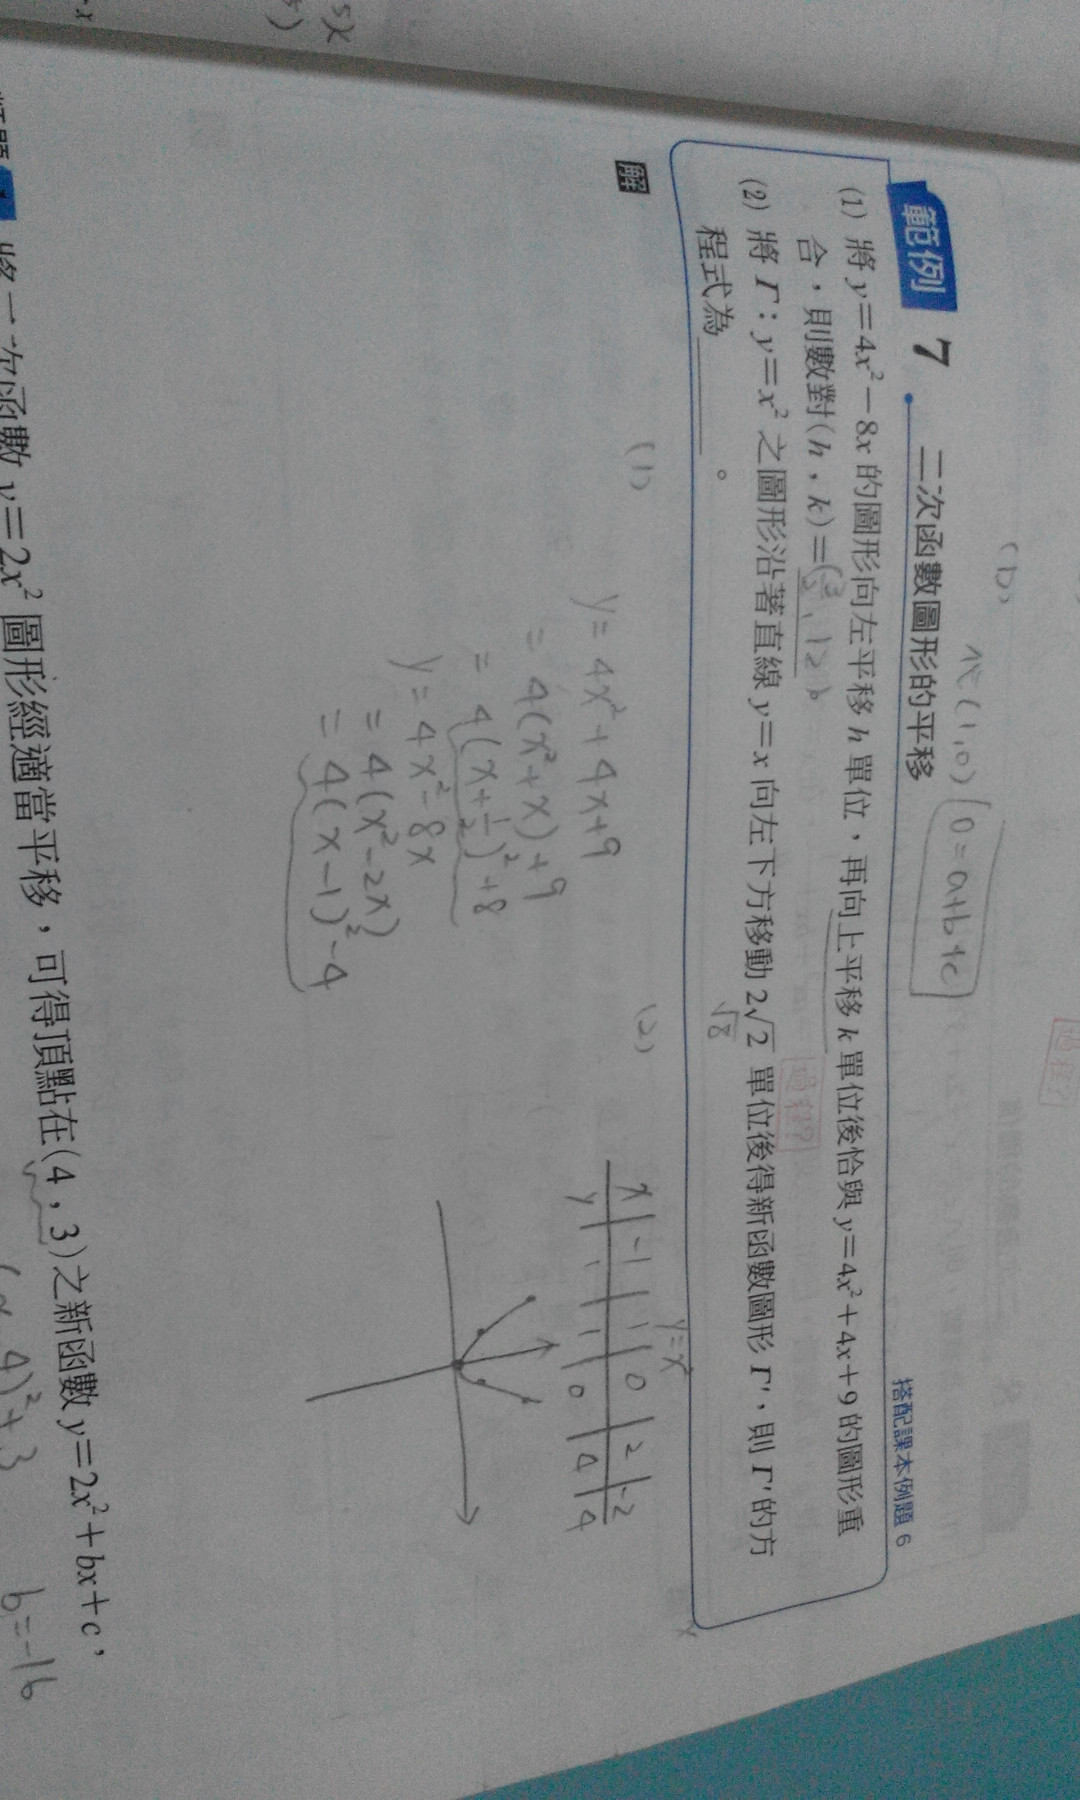 (1) 代(1,0) 0=a+b+c
範例 7 二次函數圖形的平移
搭配課本例題 6
(1) 將 y=4x²-8x 的圖形向左平移 h 單位，再向上平移 k 單位後恰與 y=4x²+4x+9 的圖形重
合，則數對(h，k)=(3/2, 12)
(2) 將 Γ：y=x² 之圖形沿著直線 y=x 向左下方移動 2√2 單位後得新函數圖形 Γ'，則 Γ' 的方
√8
程式為＿＿＿＿。
解
(1)
y=4x²+4x+9
=4(x²+x)+9
=4(x+1/2)²+8
y=4x²-8x
=4(x²-2x)
=4(x-1)²-4
(2)
y=x²
x | -1 | 1 | 0 | 2 | -2
y | 1 | 1 | 0 | 4 | 4
將二次函數 y=2x² 圖形經適當平移，可得頂點在(4，3)之新函數 y=2x²+bx+c，
4)²+3
b=-16